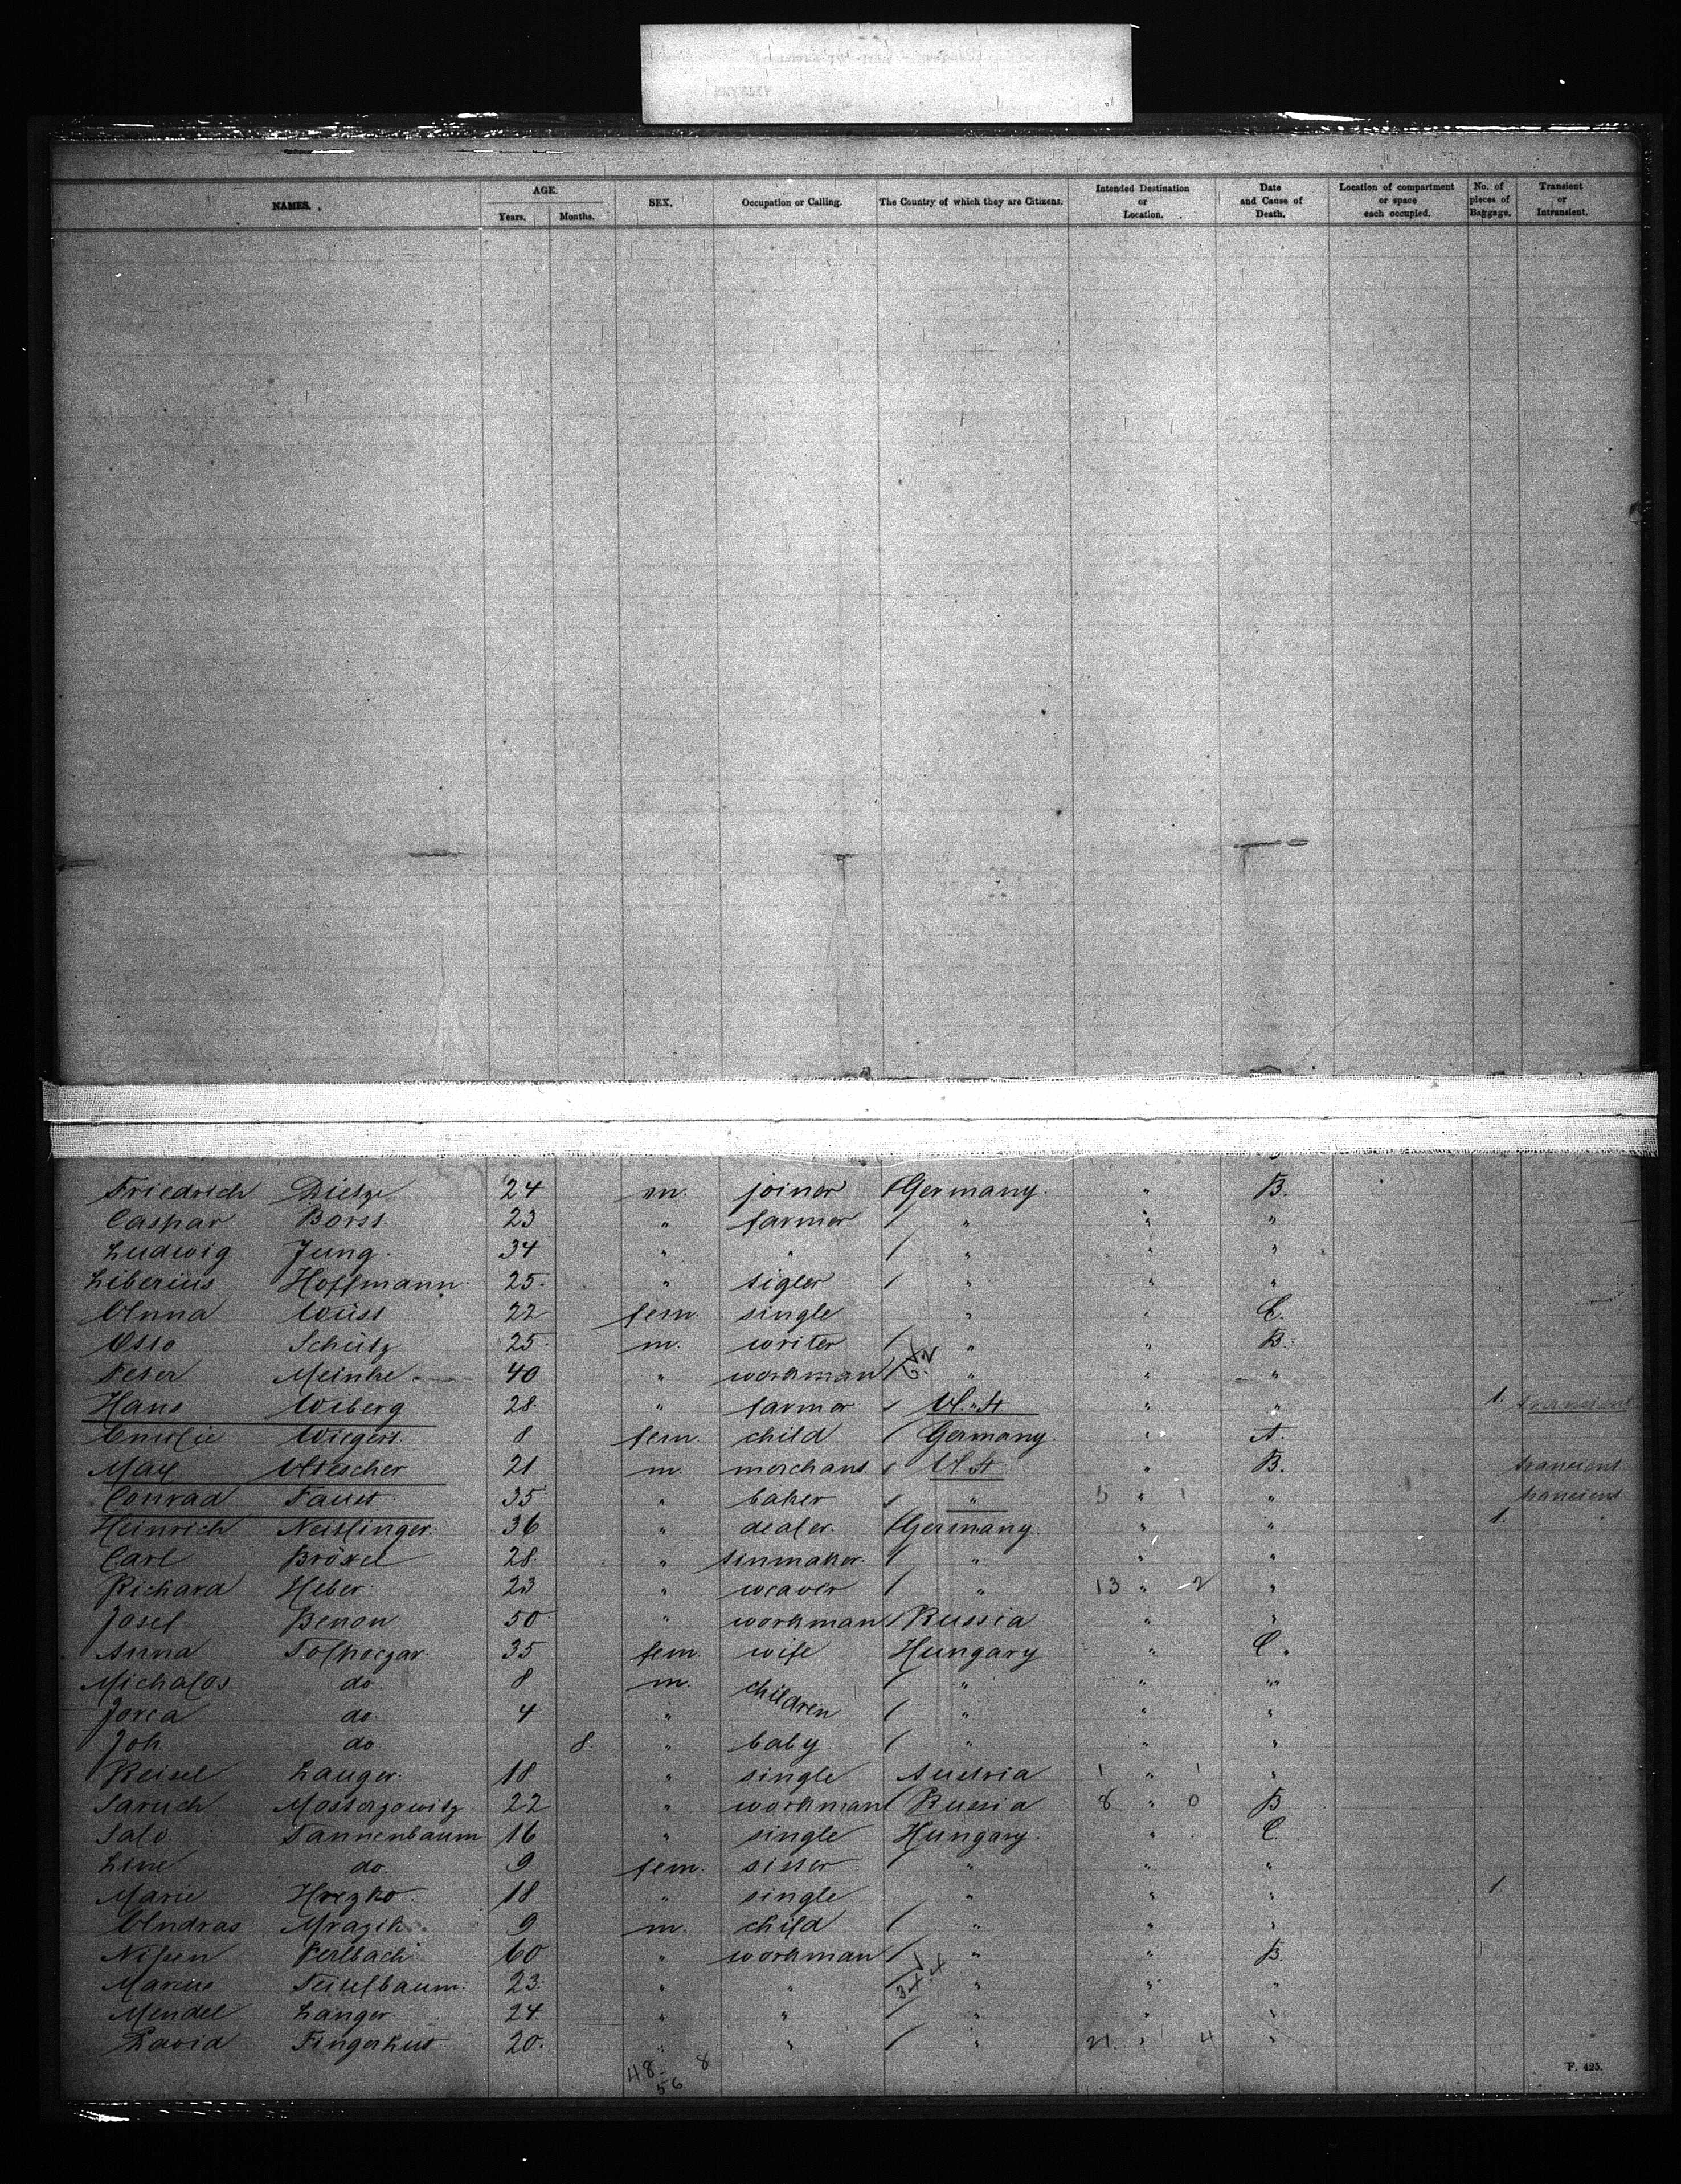 NAMES. AGE. SEX. Occupation or Calling. The Country of which they are Citizens. Intended Destination or Location. Date and Cause of Death. Location of compartment or space each occupied. No. of pieces of Baggage. Transient or Intransient.
Years. Months.
Friedrich Dietze 24 m. joiner Germany. " B.
Caspar Borss 23 " farmer " " "
Ludwig Jung. 34 " " " " "
Liberius Hoffmann 25. " sigler " " "
Anna Wüst 22 fem. single " " C.
Otto Schütz 25. m. writer " " B.
Peter Meinke 40 " workman " " "
Hans Wiberg 28. " farmer U. St " " 1. transient
Emilie Wiegert 8 fem. child Germany. " A.
Max Ascher 21 m. merchant U. St " B. transient
Conrad Faust 35 " baker " 5 " 1 " transient
Heinrich Neislinger. 36 " dealer. Germany. " " 1.
Carl Bröxel 28. " tinmaker. " " "
Richard Heber. 23 " weaver " 13 " 2 "
Josef Benon 50 " workman Russia " "
Anna Tolpeczar. 35 fem. wife Hungary " C.
Michalos do. 8 m. children " " "
Jorca do. 4 " " " "
Joh. do 8. " baby " " "
Reisel Langer. 18 " single Austria 1 " 1 "
Saruch Mosserzowitz 22 " workman Russia 8 " 0 B
Salo Tannenbaum 16 " single Hungary. " C.
Line do. 9 fem. sister " " "
Marie Hrezko. 18 " single " " " 1.
Andras Mrazik 9 m. child " " "
Nissen Perlbach 60 " workman " " B.
Marcus Teitelbaum. 23. " " " " "
Mendel Langer. 24 " " " " "
David Fingerhut 20. " " " 21. " 4 "
48- 8
56
F. 425.